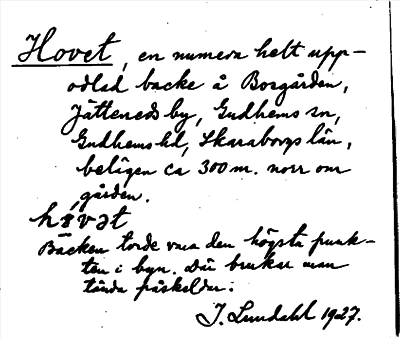 Hovet, en numera helt upp-
odlad backe å Borgården,
Jätteneds by, Gudhems sn,
Gudhems hd, Skaraborgs län,
belägen ca 300 m. norr om
gården.
hŏvət
Backen torde vara den högsta punk-
ten i byn. Där brukar man
tända påskeldar.
J. Lundahl 1927.